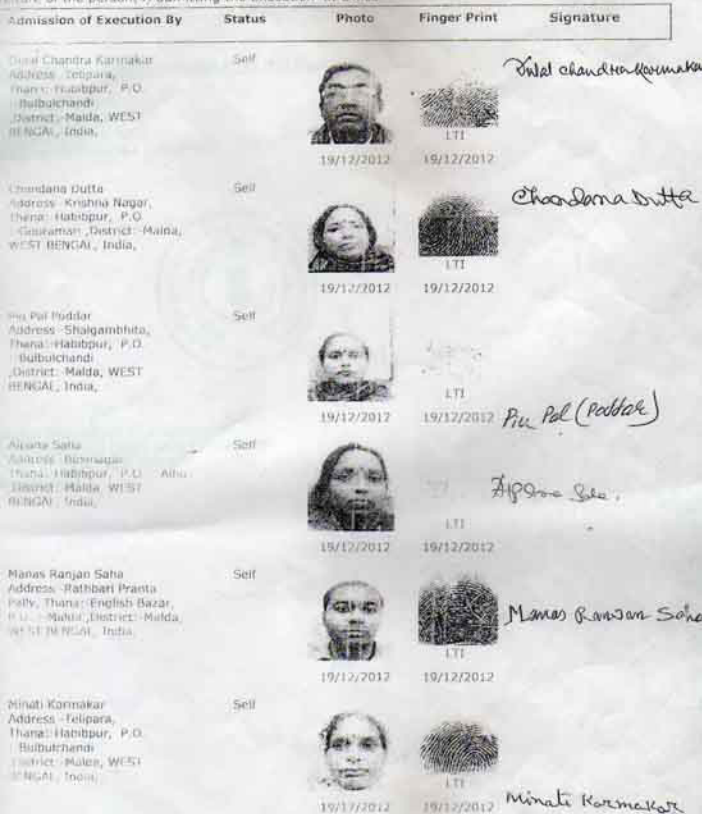 Admission of Execution By Status Photo Finger Print Signature
Chandra Karmakar Self
Address -Telipara,
Thana:-Habibpur, P.O.
:-Bulbulchandi
,District:-Malda, WEST
BENGAL, India,
LTI
19/12/2012 19/12/2012
Dulal Chandra Karmakar
Chandana Dutta Self
Address -Krishna Nagar,
Thana:-Habibpur, P.O.
,District:-Malda,
WEST BENGAL, India,
LTI
19/12/2012 19/12/2012
Chandana Dutta
Pal Poddar Self
Address -Shalgambhita,
Thana:-Habibpur, P.O.
:-Bulbulchandi
,District:-Malda, WEST
BENGAL, India,
LTI
19/12/2012 19/12/2012
Piu Pal (Poddar)
Alpana Saha Self
Address
Thana:-Habibpur, P.O. :-Aiho
,District:-Malda, WEST
BENGAL, India,
LTI
19/12/2012 19/12/2012
Alpana Saha.
Manas Ranjan Saha Self
Address -Rathbari Pranta
Pally, Thana:-English Bazar,
P.O. :-Malda ,District:-Malda,
WEST BENGAL, India,
LTI
19/12/2012 19/12/2012
Manas Ranjan Saha
Minati Karmakar Self
Address -Telipara,
Thana:-Habibpur, P.O.
:-Bulbulchandi
,District:-Malda, WEST
BENGAL, India,
LTI
19/12/2012 19/12/2012
Minati Karmakar